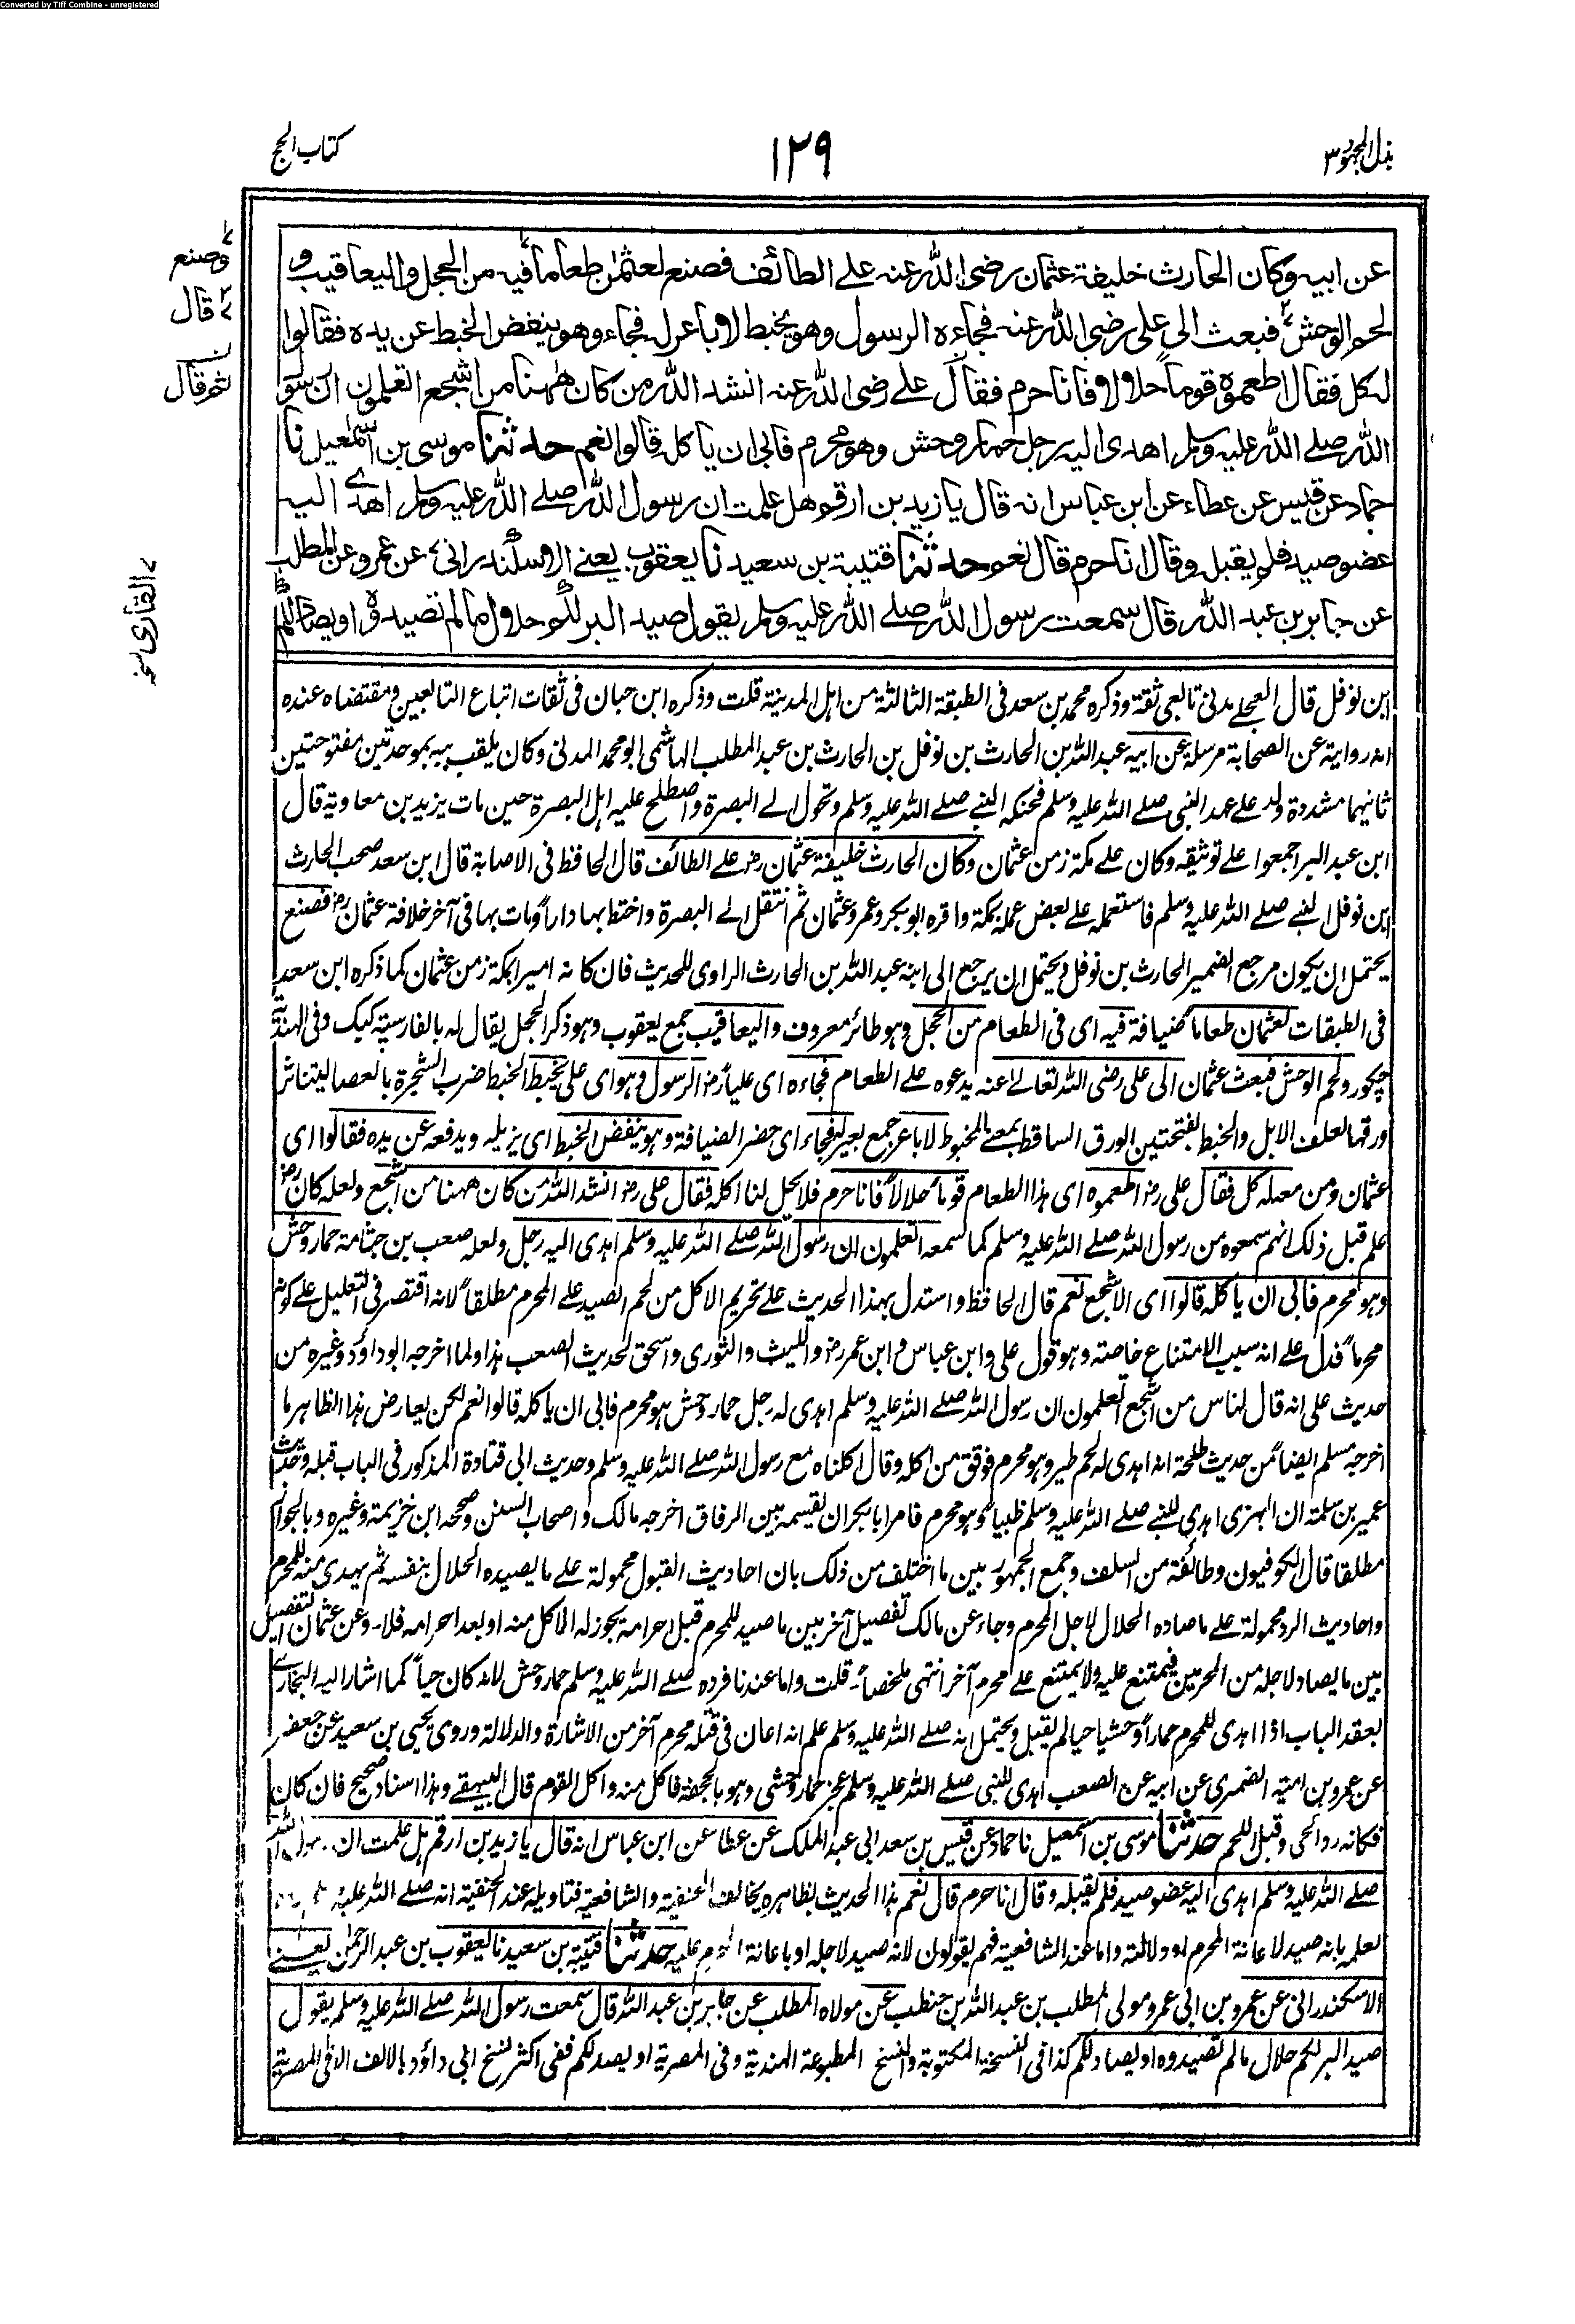 Converted by Tiff Combine - unregistered
بذل المجهود ٣
١٢٩
كتاب الحج
عن ابيه وكان الحارث خليفة عثمان رضى الله عنه على الطائف فصنع لعثمٰن طعاما فيه من الحجل واليعاقيب و
لحم الوحش فبعث الى على رضى الله عنه فجاءه الرسول وهو يخبط لاباعر له فجاء وهو ينفض الخبط عن يده فقالوا
له كل فقال اطعموه قوما حلالا فانا حرم فقال على رضى الله عنه انشد الله من كان ههنا من اشجع اتعلمون ان رسول
الله صلے الله عليه وسلم اهدى اليه رجل حمار وحش وهو محرم فابى ان ياكله قالوا نعم حدثنا موسى بن اسمٰعيل نا
حماد عن قيس عن عطاء عن ابن عباس انه قال يا زيد بن ارقم هل علمت ان رسول الله صلے الله عليه وسلم اهدے اليه
عضو صيد فلم يقبله وقال انا حرم قال نعم حدثنا قتيبة بن سعيد نا يعقوب يعنے الاسكندرانى عن عمرو عن المطلب
عن جابر بن عبد الله قال سمعت رسول الله صلے الله عليه وسلم يقول صيد البر لكم حلال ما لم تصيدوه او يصاد لكم
وصنع
قال
ثم قال
القارى نسخہ
ابن نوفل قال العجلے مدنى تابعى ثقة وذكره محمد بن سعد فى الطبقة الثالثة من اهل المدينة قلت وذكره ابن حبان فى ثقات اتباع التابعين ومقتضاه عنده
ان روايته عن الصحابة مرسلة عن ابيه عبد الله بن الحارث بن نوفل بن الحارث بن عبد المطلب الهاشمى ابو محمد المدنى وكان يلقب ببه بموحدتين مفتوحتين
ثانيهما مشددة ولد على عهد النبى صلے الله عليه وسلم فحنكه النبے صلے الله عليه وسلم وتحول الے البصرة واصطلح عليه اهل البصرة حين مات يزيد بن معاوية قال
ابن عبد البر اجمعوا على توثيقه وكان علے مكة زمن عثمان وكان الحارث خليفة عثمان رض على الطائف قال الحافظ فى الاصابة قال ابن سعد صحب الحارث
ابن نوفل النبے صلے الله عليه وسلم فاستعمله على بعض عمله بمكة واقره ابو بكر وعمر وعثمان ثم انتقل الے البصرة واختط بها داراً ومات بها فى آخر خلافة عثمان رض فصنع
يحتمل ان يكون مرجع الضمير الحارث بن نوفل ويحتمل ان يرجع الى ابنه عبد الله بن الحارث الراوى للحديث فان كانه اميرا بمكة زمن عثمان كما ذكره ابن سعد
فى الطبقات لعثمان طعاما ضيافة فيه اى فى الطعام من الحجل وهو طائر معروف واليعاقيب جمع يعقوب وهو ذكر الحجل يقال له بالفارسية كبك وفى الهندية
چكور ولحم الوحش فبعث عثمان الى على رضى الله تعالے عنه يدعوه على الطعام فجاءه اى علياً رض الرسول وهو اى على يخبط الخبط ضرب الشجرة بالعصا ليتناثر
ورقها لعلف الابل والخبط بفتحتين الورق الساقط بمعنے المخبوط لاباعر جمع بعير له فجاء اى حضر الضيافة وهو ينفض الخبط اى يزيله ويدفعه عن يده فقالوا اى
عثمان ومن معه له كل فقال على رض اطعموه اى هذا الطعام قوماً حلالاً فانا حرم فلا يحل لنا اكله فقال على رض انشد الله من كان ههنا من اشجع ولعله كان رض
علم قبل ذلك انهم سمعوه من رسول الله صلے الله عليه وسلم كما سمعه اتعلمون ان رسول الله صلے الله عليه وسلم اهدى اليه رجل ولعله صعب بن جثامة حمار وحش
وهو محرم فابى ان ياكله قالوا اى الاشجع نعم قال الحافظ واستدل بهذا الحديث على تحريم الاكل من لحم الصيد على المحرم مطلقاً لانه اقتصر فى التعليل على كونه
محرماً فدل على انه سبب الامتناع خاصته وهو قول على وابن عباس وابن عمر رض والليث والثورى واسحق لحديث الصعب هذا ولما اخرجه ابو داؤد وغيره من
حديث على انه قال لناس من اشجع اتعلمون ان رسول الله صلے الله عليه وسلم اهدى له رجل حمار وحش هو محرم فابى ان ياكله قالوا نعم لكن يعارض هذا الظاهر ما
اخرجه مسلم ايضاً من حديث طلحة انه اهدى له لحم طير وهو محرم فوفق من اكله وقال اكلناه مع رسول الله صلے الله عليه وسلم وحديث ابى قتادة المذكور فى الباب قبله وحديث
عمير بن سلمة ان البهزى اهدى للنبے صلے الله عليه وسلم ظبياً وهو محرم فامر ابا بكر ان يقسمه بين الرفاق اخرجه مالك واصحاب السنن وصححه ابن خزيمة وغيره وبالجواز
مطلقا قال الكوفيون وطائفة من السلف وجمع الجمهور بين ما اختلف من ذلك بان احاديث القبول محمولة على ما يصيده الحلال بنفسه ثم يهدى منه للمحرم
واحاديث الرد محمولة على ما صاده الحلال لاجل المحرم وجاء عن مالك تفصيل آخر بين ما صيد للمحرم قبل احرامه يجوز له الاكل منه او بعد احرامه فلا۔ وعن عثمان التفصيل
بين ما يصاد لاجله من المحرمين فيمتنع عليه ولا يمتنع على محرم آخر انتهى ملخصاً۔ قلت واما عندنا فرده صلے الله عليه وسلم حمار وحش لانه كان حياً كما اشار اليه البخارے
بعقد الباب اذا اهدى للمحرم حماراً وحشيا حيا لم يقبل ويحتمل انه صلے الله عليه وسلم علم انه اعان فى قتله محرم آخر من الاشارة والدلالة وروى يحيى بن سعيد عن جعفر
عن عمرو بن امية الضمرى عن ابيه عن الصعب اهدى للنبى صلے الله عليه وسلم عجز حمار وحشى وهو بالجحفة فاكل منه واكل القوم قال البيهقے وهذا اسناد صحيح فان كان
فكانه رد الحى وقبل اللحم حدثنا موسى بن اسمعيل نا حماد عن قيس بن سعد ابى عبد الملك عن عطا عن ابن عباس انه قال يا زيد بن ارقم هل علمت ان رسول الله
صلے الله عليه وسلم اهدى اليه عضو صيد فلم يقبله وقال انا حرم قال نعم هذا الحديث بظاهره يخالف الحنفية والشافعية فتاويله عند الحنفية انه صلے الله عليه
لعلمه بانه صيد لاعانة المحرم او دلالته واما عند الشافعية فهم يقولون لانه صيد لاجله او باعانة المحرم عليه حدثنا قتيبة بن سعيد نا يعقوب بن عبد الرحمٰن يعنے
الاسكندرانى عن عمرو بن ابى عمرو مولى المطلب بن عبد الله بن حنطب عن مولاه المطلب عن جابر بن عبد الله قال سمعت رسول الله صلے الله عليه وسلم يقول
صيد البر لكم حلال ما لم تصيدوه او يصاد لكم كذا فى النسخة المكتوبة والنسخ المطبوعة الهندية وفى المصرية او يصد لكم ففى اكثر نسخ ابى داؤد بالالف الا فى المصرية